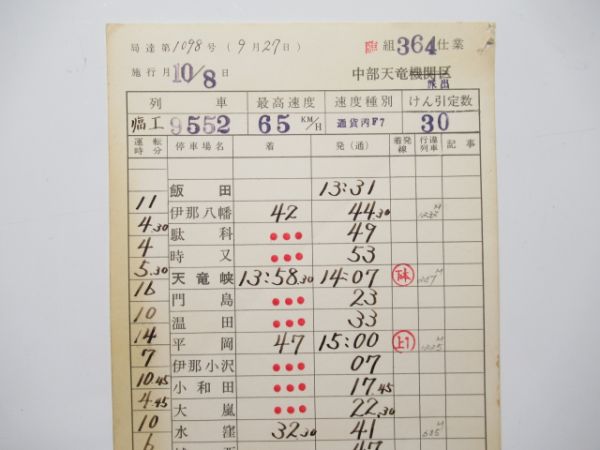 局達第1098号 (9月27日) 臨組364仕業
施行月10/8日 中部天竜機関区
派出
列車 最高速度 速度種別 けん引定数
臨工9552 65KM/H 通貨丙F7 30
運転時分 停車場名 着 発(通) 着発線 行違列車 記事
飯田 13:31
11
伊那八幡 42 44.30
4.30
駄科 ●●● 49
4
時又 ●●● 53
5.30
天竜峡 13:58.30 14:07 下本
16
門島 ●●● 23
10
温田 ●●● 33
14
平岡 47 15:00 上1
7
伊那小沢 ●●● 07
10.45
小和田 ●●● 17.45
4.45
大嵐 ●●● 22.30
10
水窪 32.30 41
6
47